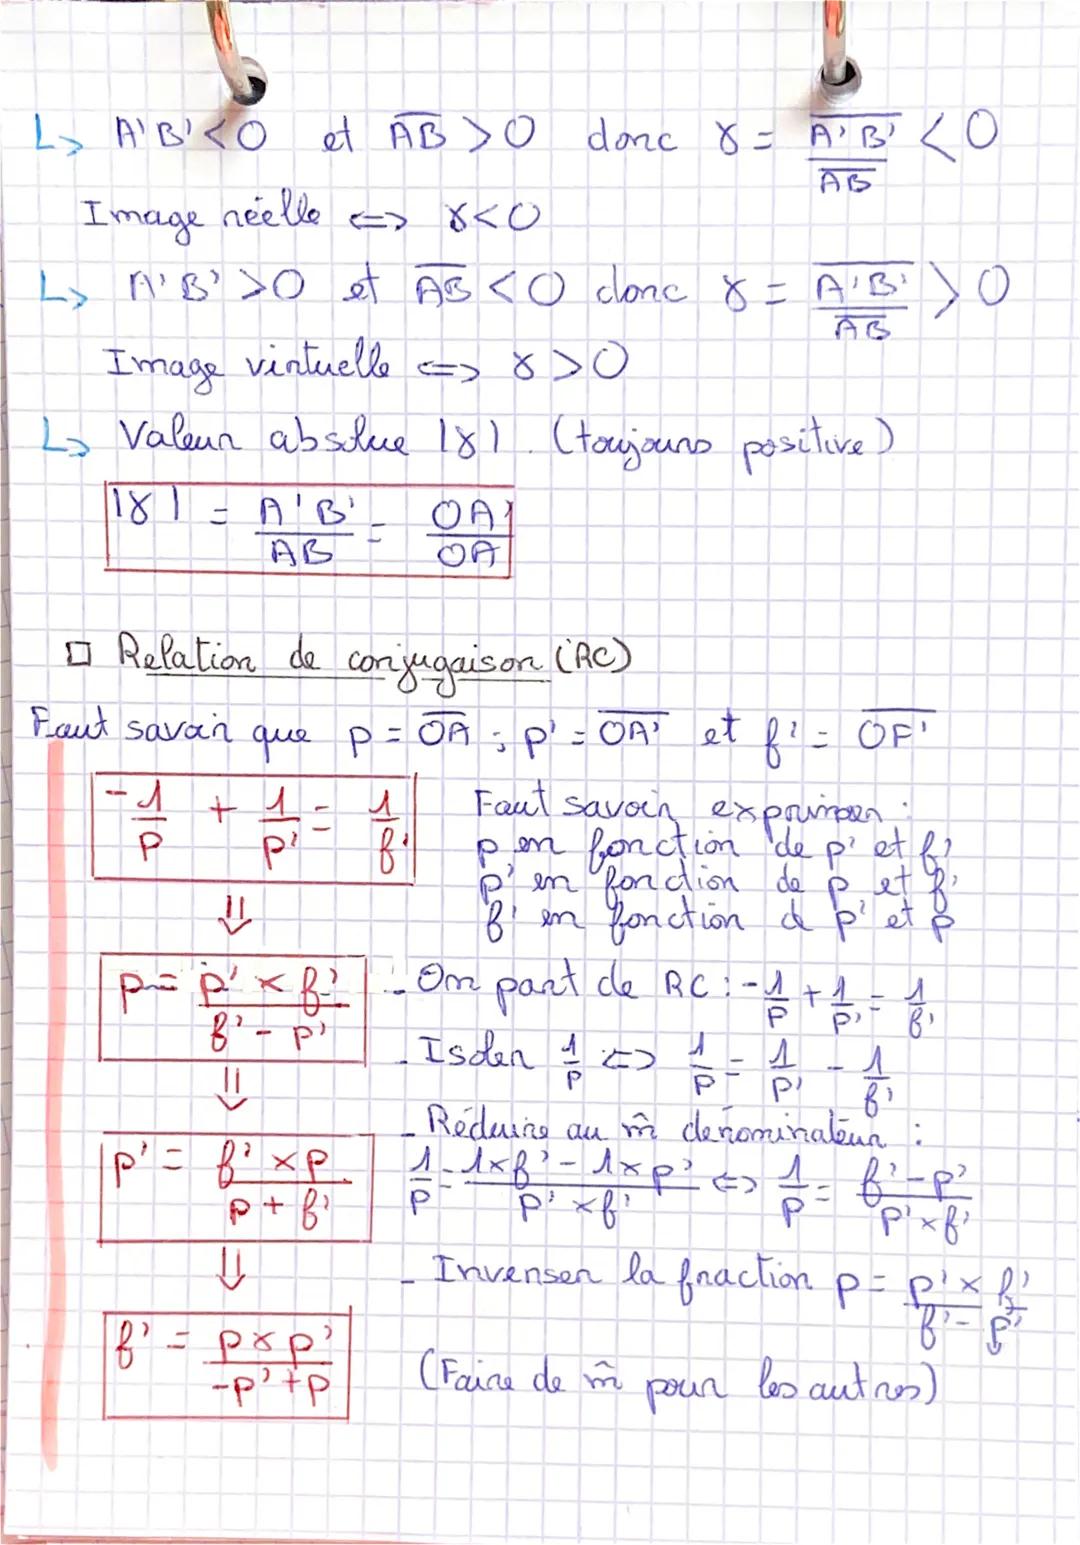 ↳ A'B' < 0 et A̅B̅ > 0 donc γ = A̅'̅B̅'̅ / A̅B̅ < 0
Image réelle <=> γ < 0
↳ A'B' > 0 et A̅B̅ < 0 donc γ = A̅'̅B̅'̅ / A̅B̅ > 0
Image virtuelle <=> γ > 0
↳ Valeur absolue |γ|. (toujours positive)
|γ| = A'B' / AB = OA' / OA
□ Relation de conjugaison (RC)
Faut savoir que p = O̅A̅ ; p' = O̅A̅'̅ et f' = O̅F̅'̅
-1/p + 1/p' = 1/f'
Faut savoir exprimer :
p en fonction de p' et f'
p' en fonction de p et f'
f' en fonction d p' et p
⇓
p = p' × f' / f' - p'
- On part de RC : -1/p + 1/p' = 1/f'
- Isoler 1/p <=> 1/p = 1/p' - 1/f'
⇓
- Réduire au m̂ dénominateur :
p' = f' × p / p + f'
1/p = 1×f' - 1×p' / p' × f' <=> 1/p = f' - p' / p' × f'
⇓
- Inverser la fraction p = p' × f' / f' - p'
f' = p × p' / -p' + p
(Faire de m̂ pour les autres)